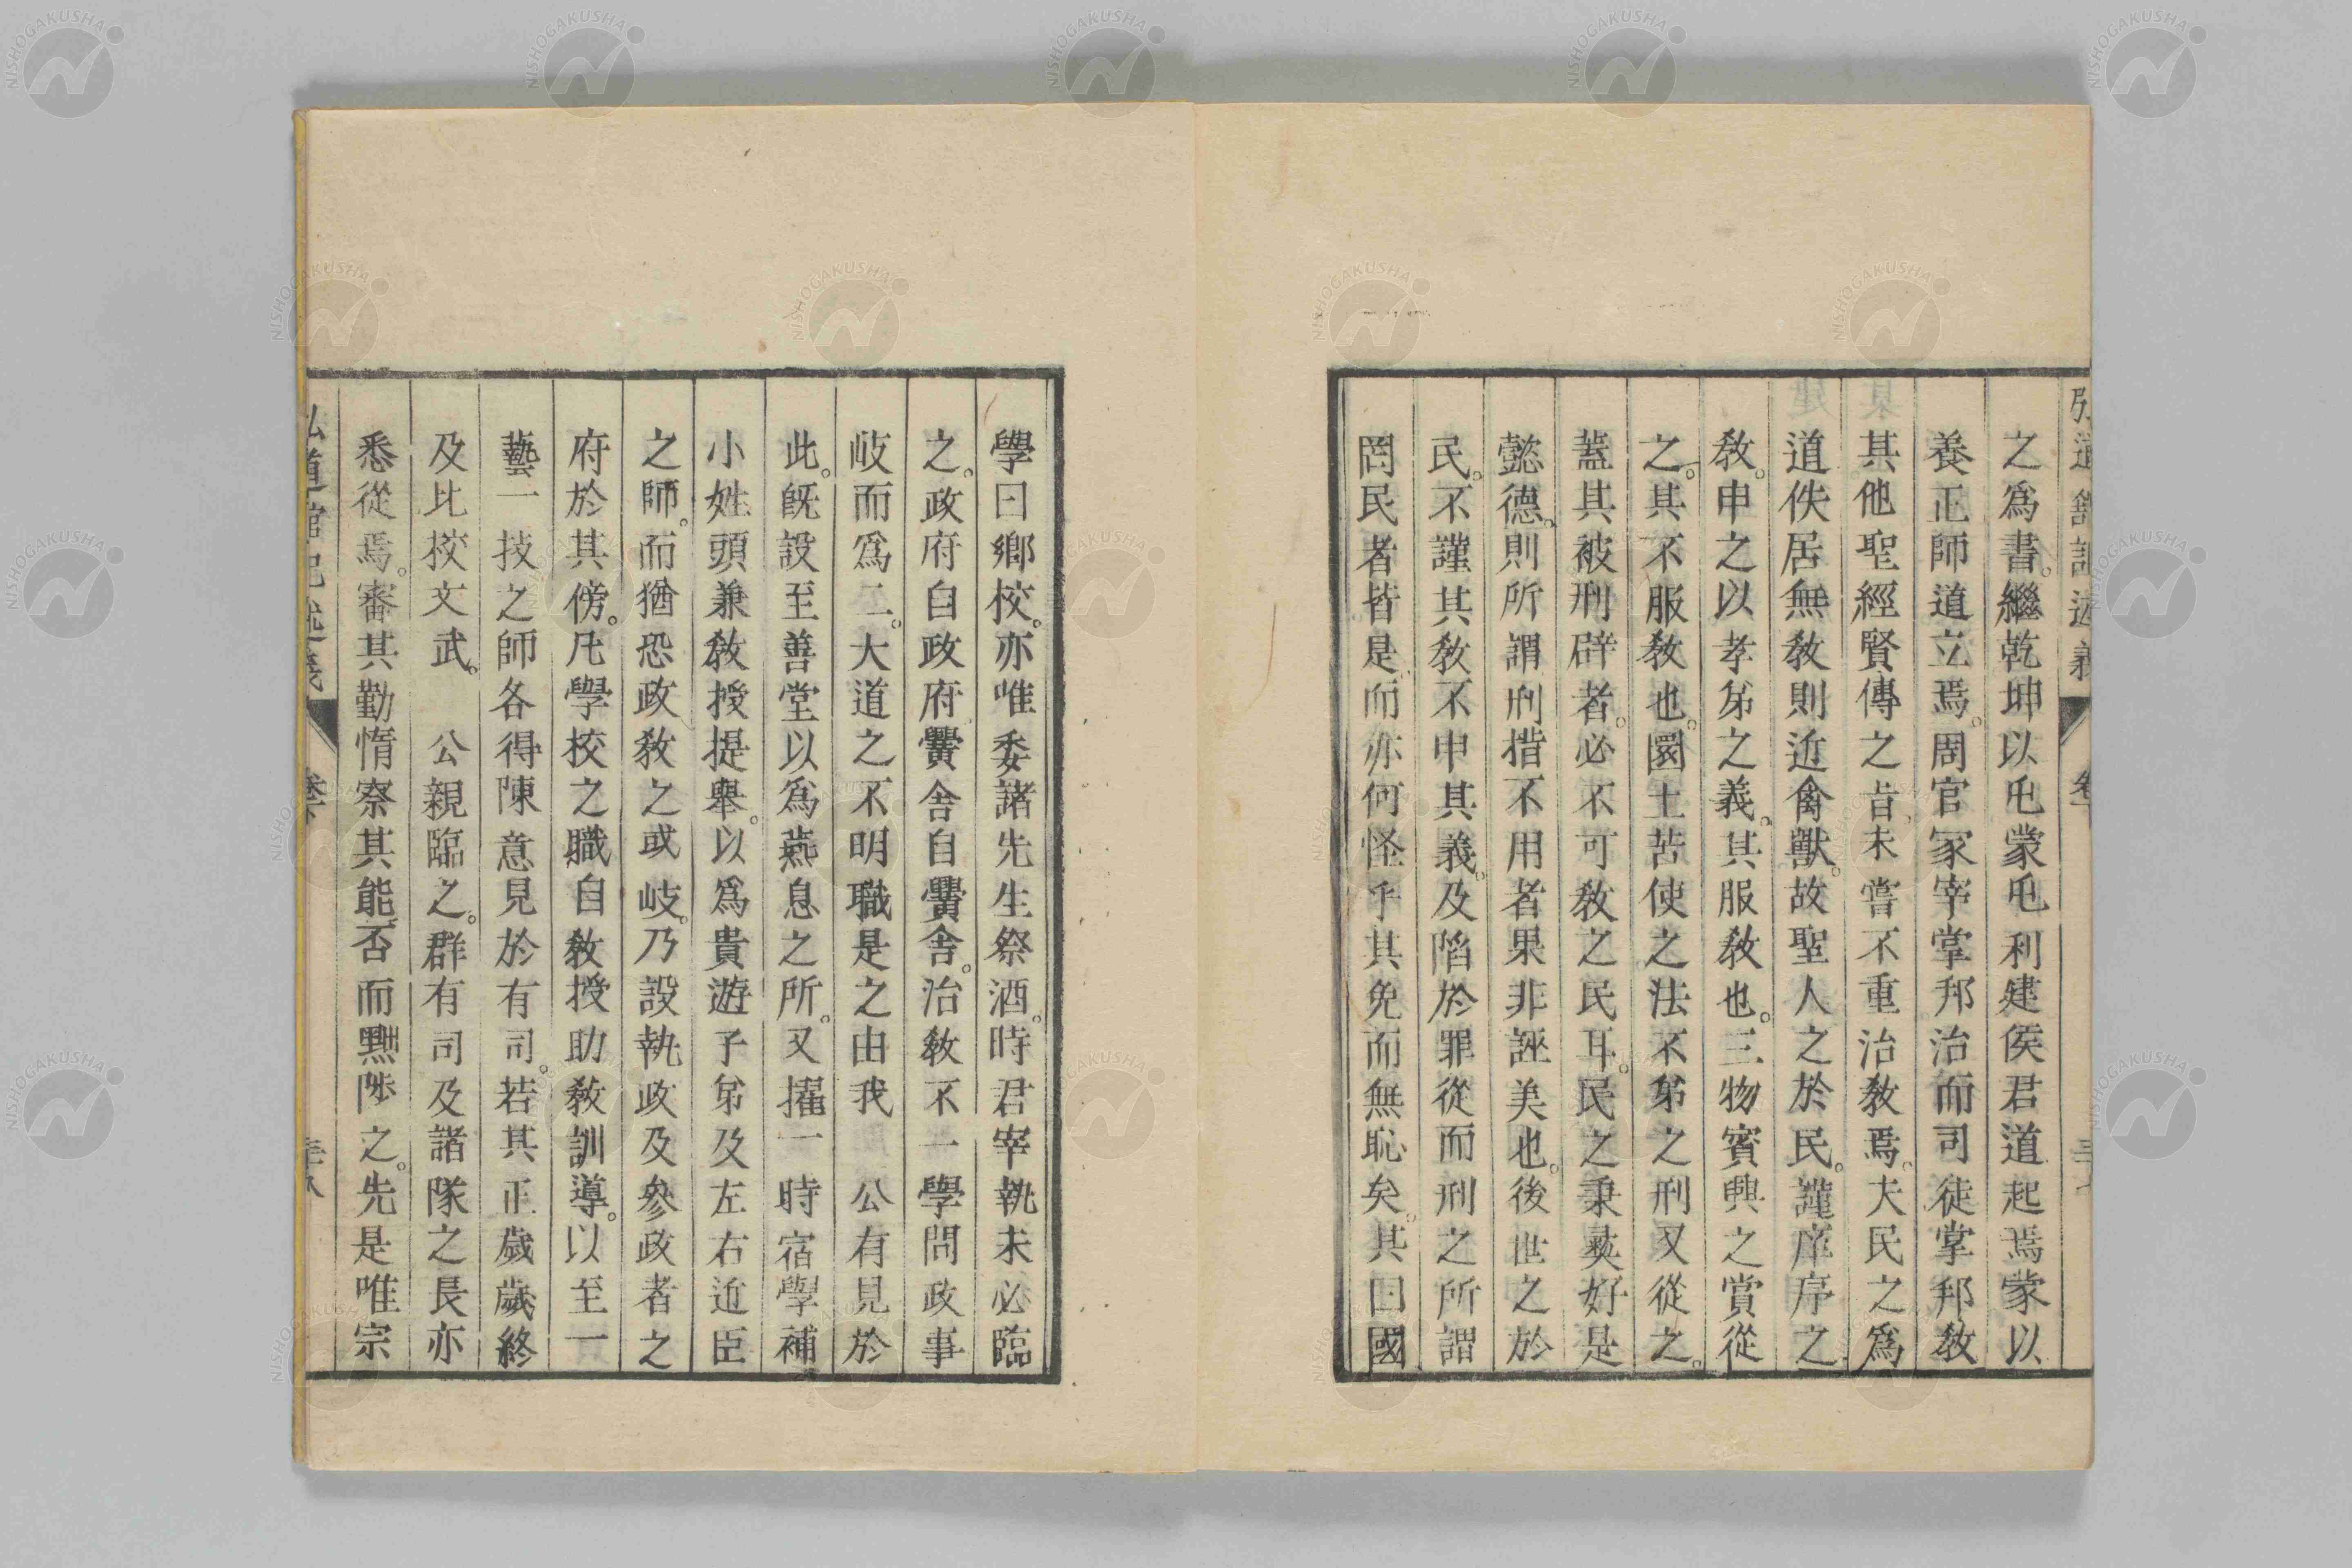 弘道館記述義
卷下
之爲書。繼乾坤以屯蒙屯利建侯君道起焉蒙以
養正師道立焉。周官冢宰掌邦治而司徒掌邦敎
其他聖經賢傳之旨未嘗不重治敎焉。夫民之爲
道佚居無敎則近禽獸。故聖人之於民。謹庠序之
敎。申之以孝弟之義。其服敎也。三物賓興之賞從
之。其不服敎也。圜土苦使之法不弟之刑又從之。
蓋其被刑辟者。必不可敎之民耳。民之秉彝好是
懿德。則所謂刑措不用者果非誣美也。後世之於
民。不謹其敎不申其義。及陷於罪從而刑之所謂
罔民者皆是而亦何怪乎其免而無恥矣。其曰國
學曰鄉校。亦唯委諸先生祭酒。時君宰執未必臨
之。政府自政府黌舍自黌舍。治敎不一學問政事
岐而爲二。大道之不明職是之由我 公有見於
此。旣設至善堂以爲燕息之所。又擢一時宿學補
小姓頭兼敎授提舉。以爲貴遊子弟及左右近臣
之師。而猶恐政敎之或岐。乃設執政及參政者之
府於其傍。凡學校之職自敎授助敎訓導。以至一
藝一技之師各得陳意見於有司。若其正歲歲終
及比校文武。 公親臨之。群有司及諸隊之長亦
悉從焉。審其勤惰察其能否而黜陟之。先是唯宗
弘道館記述義
卷下
三十八
NISHOGAKUSHA